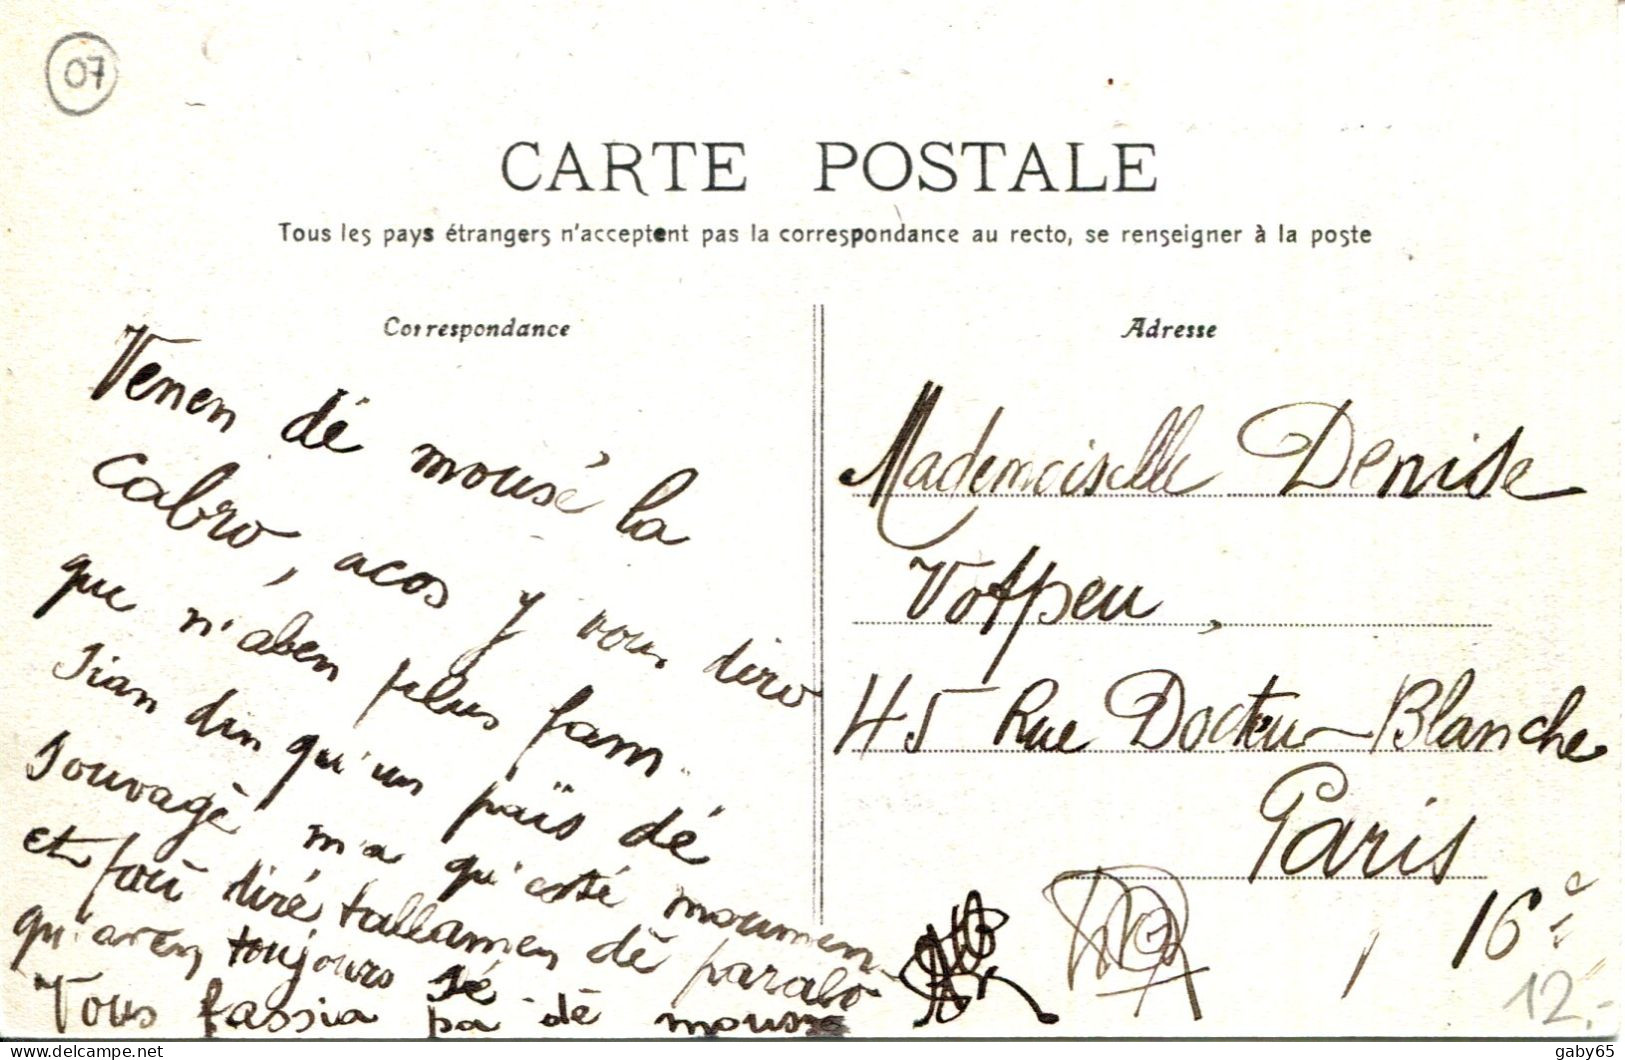 07
CARTE POSTALE
Tous les pays étrangers n'acceptent pas la correspondance au recto, se renseigner à la poste
Correspondance
Venen dé mousé la
cabro, acos y vous diro
que n'aben plus fam.
Sian din qu'un païs dé
souvagé m'a qu'esté moumen
et foou diré tallamen dé parabo
qu'aven toujours sé
Vous fassia pa dé
Adresse
Mademoiselle Denise
Votpeu,
45 Rue Docteur Blanche
Paris
16e
12.-
delcampe.net
gaby65